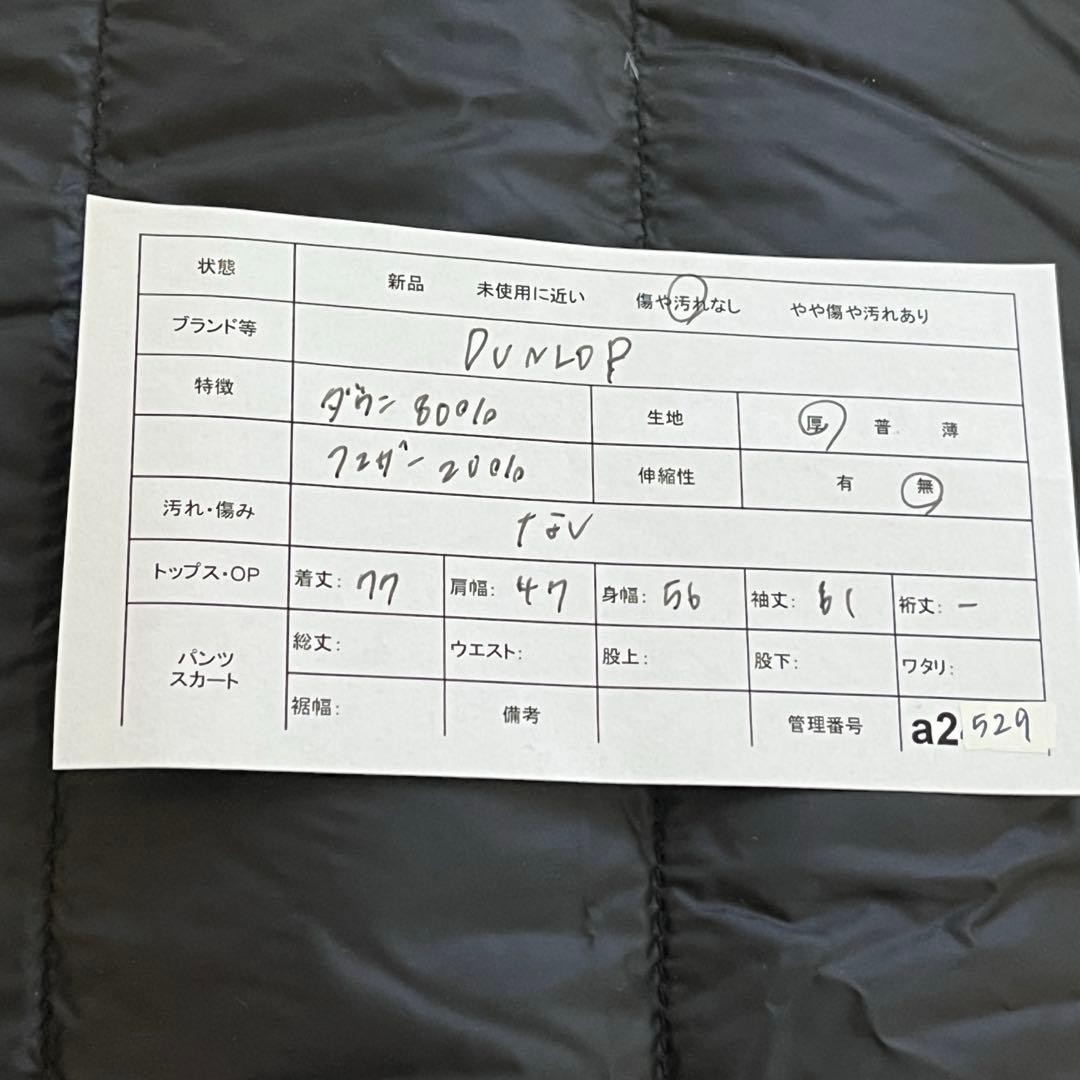 状態 新品 未使用に近い 傷や汚れなし やや傷や汚れあり
ブランド等 DUNLOP
特徴 ダウン 80% 生地 厚 普 薄
フェザー 20% 伸縮性 有 無
汚れ・傷み なし
トップス・OP 着丈: 77 肩幅: 47 身幅: 56 袖丈: 61 裄丈: ー
パンツ 総丈: ウエスト: 股上: 股下: ワタリ:
スカート
裾幅: 備考 管理番号 a2 529